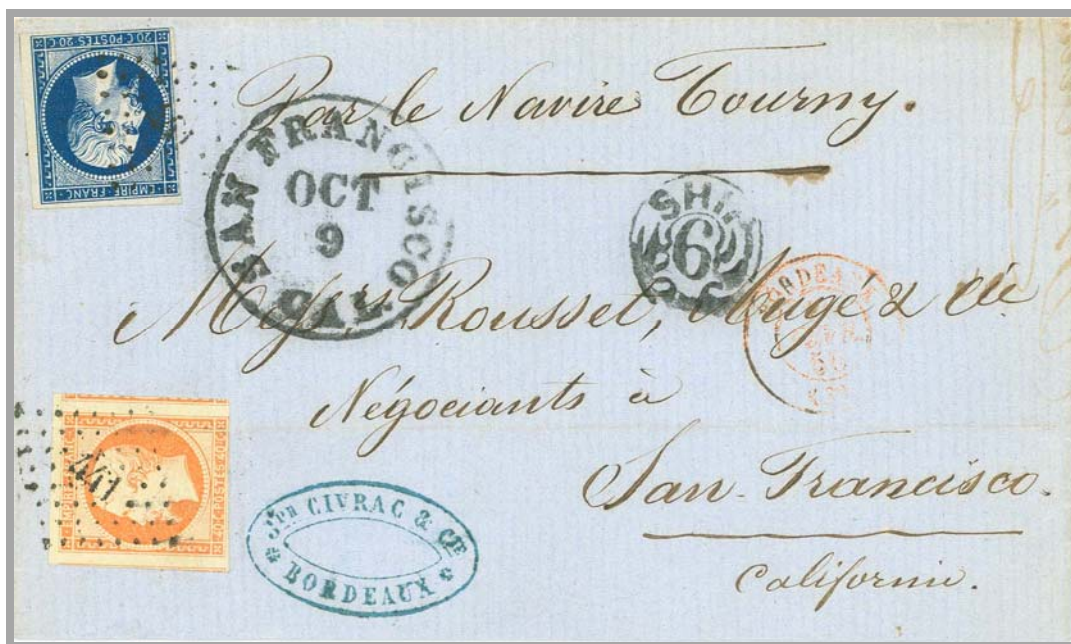 20 C POSTES 20 C
EMPIRE FRANC
Par le Navire Tourny.
SAN FRANCISCO
OCT
9
CAL
SHIP
6
BORDEAUX
Messrs Rousset, Augé & Cie
Négociants à
San-Francisco.
Californie.
EMPIRE FRANC
40 C POSTES 40 C
441
JPH CIVRAC & CIE
BORDEAUX